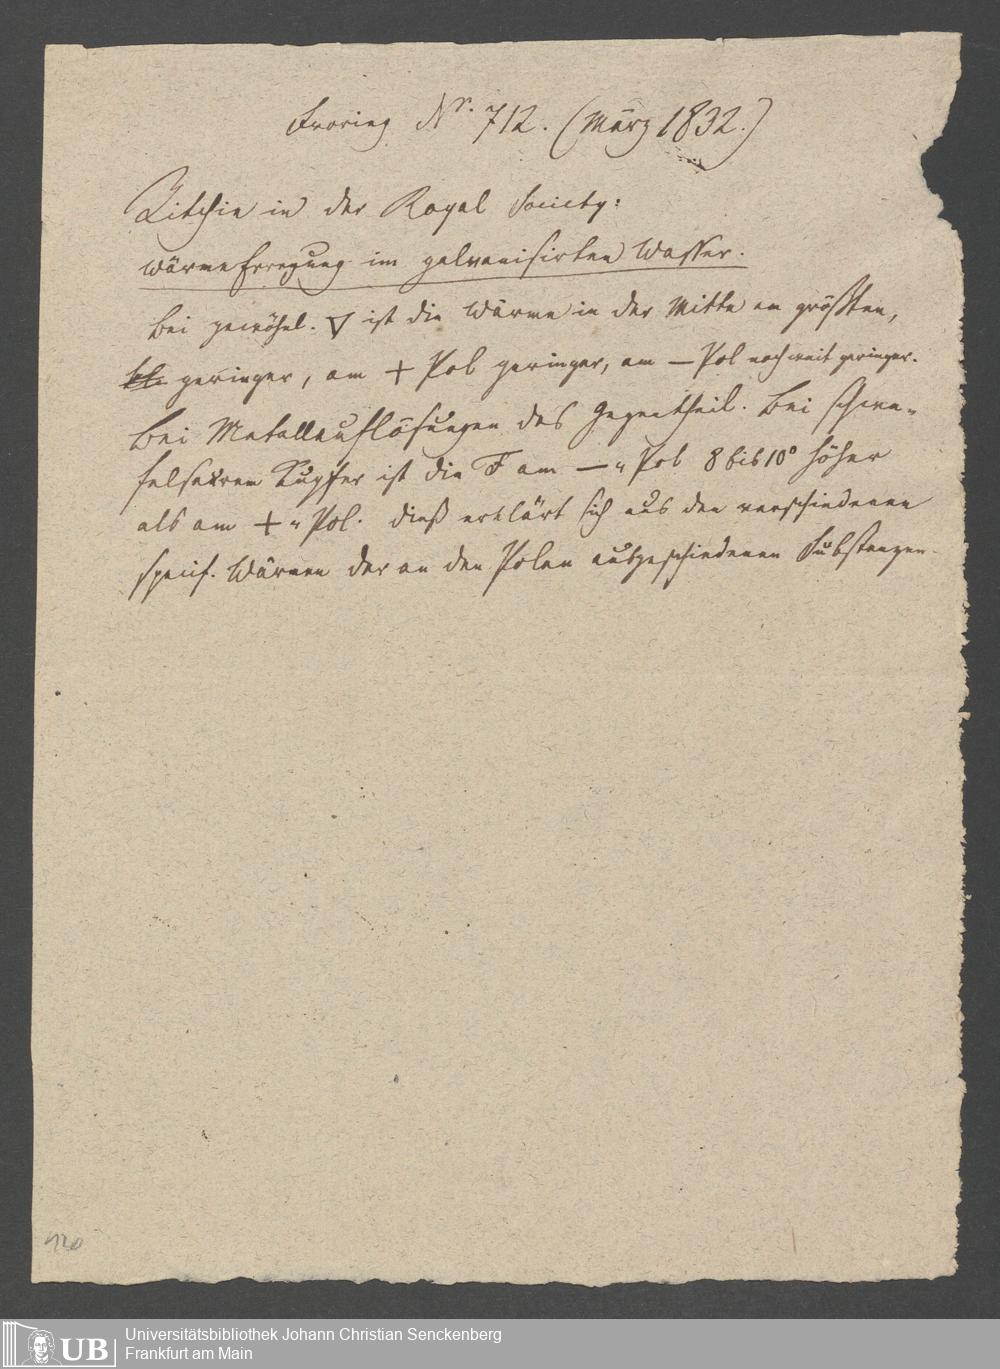 Froriep Nr. 712. (März 1832.)
Ritchie in der Royal Society:
Wärmeerregung im galvanisirten Wasser.
Bei gewöhnl. ▽ ist die Wärme in der Mitte am größten,
geringer, am + Pol geringer, am — Pol noch weit geringer.
Bei Metallauflösungen das Gegentheil. Bei schwe-
felsaurem Kupfer ist die T am — „ Pol 8 bis 10° höher
als am + „ Pol. Dieß erklärt sich aus den verschiedenen
specif. Wärmen der an den Polen ausgeschiedenen Substanzen.
120
UB
Universitätsbibliothek Johann Christian Senckenberg
Frankfurt am Main